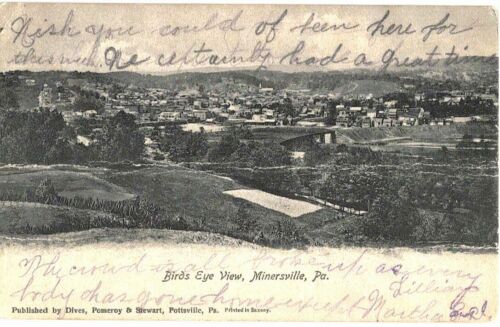 Wish you could of seen here for
this week. We certainly had a great time
Birds Eye View, Minersville, Pa.
The crowd is all broken up as every
body has gone home except Martha &
Lillian
Published by Dives, Pomeroy & Stewart, Pottsville, Pa. Printed in Saxony.